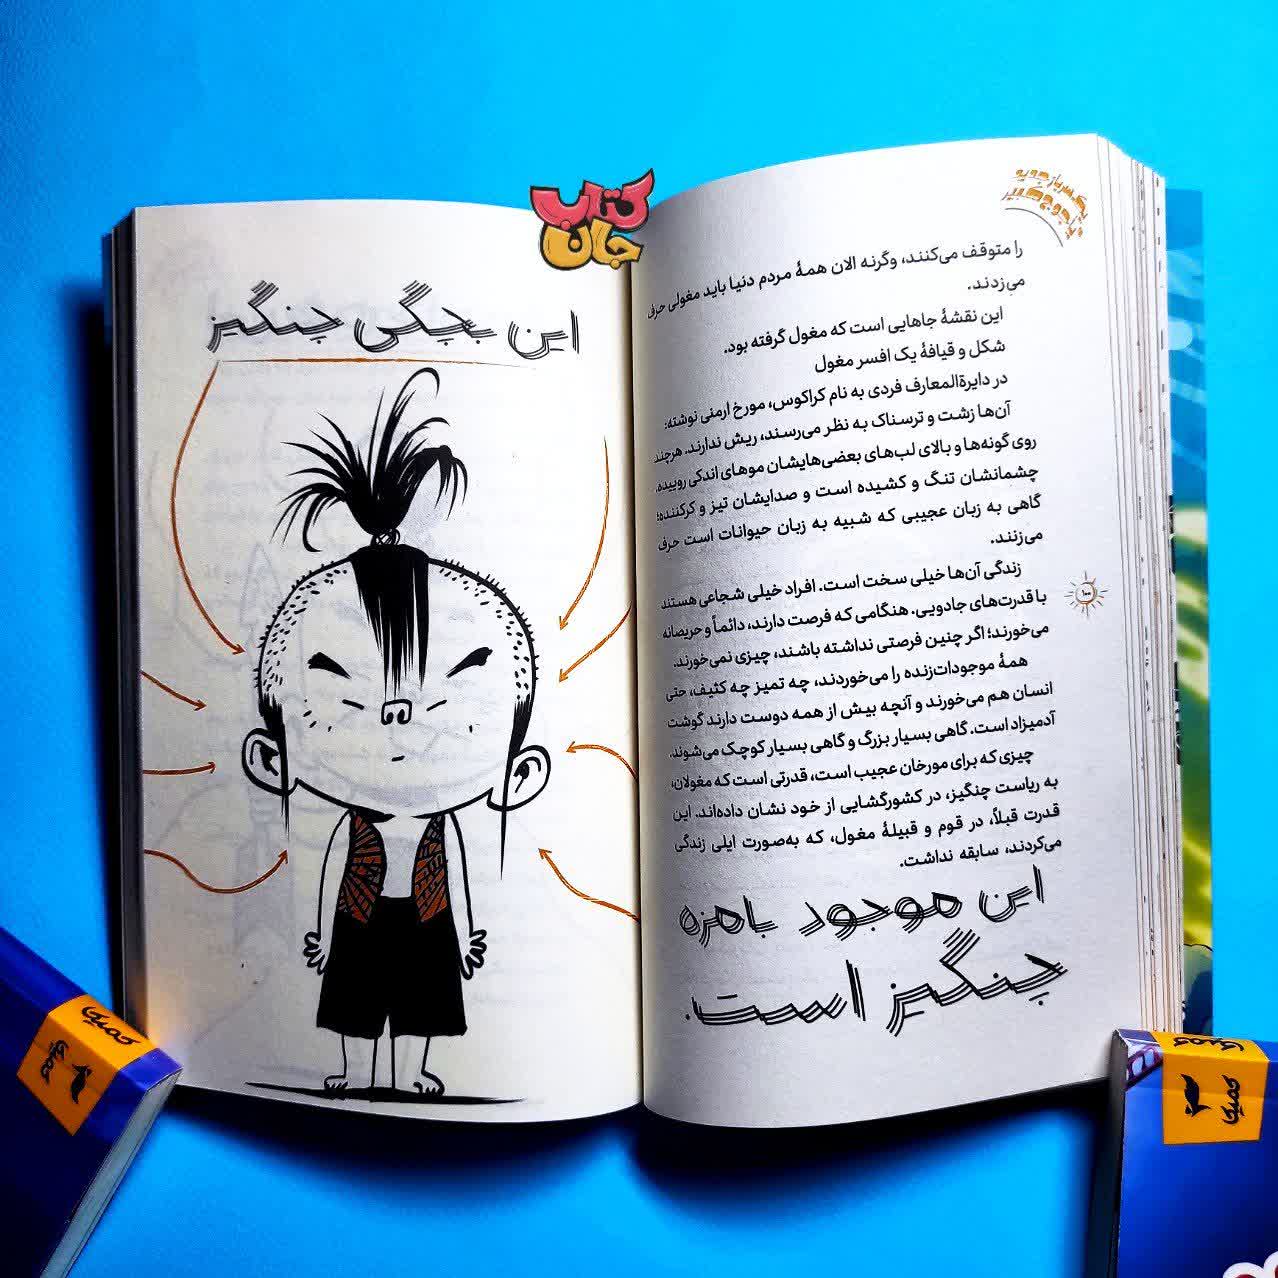 کتاب
جان
را متوقف می‌کنند، وگرنه الان همهٔ مردم دنیا باید مغولی حرف
می‌زدند.
این نقشهٔ جاهایی است که مغول گرفته بود.
شکل و قیافهٔ یک افسر مغول
در دایرةالمعارف فردی به نام کراکوس، مورخ ارمنی نوشته:
آن‌ها زشت و ترسناک به نظر می‌رسند، ریش ندارند. هرچند
روی گونه‌ها و بالای لب‌های بعضی‌هایشان موهای اندکی روییده.
چشمانشان تنگ و کشیده است و صدایشان تیز و کرکننده؛
گاهی به زبان عجیبی که شبیه به زبان حیوانات است حرف
می‌زنند.
زندگی آن‌ها خیلی سخت است. افراد خیلی شجاعی هستند
با قدرت‌های جادویی. هنگامی که فرصت دارند، دائماً و حریصانه
می‌خورند؛ اگر چنین فرصتی نداشته باشند، چیزی نمی‌خورند.
همهٔ موجودات‌زنده را می‌خوردند، چه تمیز چه کثیف، حتی
انسان هم می‌خورند و آنچه بیش از همه دوست دارند گوشت
آدمیزاد است. گاهی بسیار بزرگ و گاهی بسیار کوچک می‌شوند.
چیزی که برای مورخان عجیب است، قدرتی است که مغولان،
به ریاست چنگیز، در کشورگشایی از خود نشان داده‌اند. این
قدرت قبلاً، در قوم و قبیلهٔ مغول، که به‌صورت ایلی زندگی
می‌کردند، سابقه نداشت.
این موجود بامزه
چنگیز است.
۱۰۰
این بچگی چنگیز